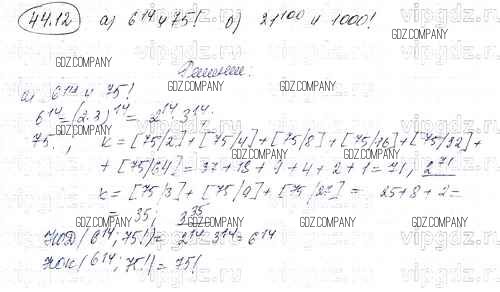 44.12 а) 6^14 и 75! б) 21^100 и 1000!
GDZ.COMPANY
Решение:
GDZ.COMPANY GDZ.COMPANY
а) 6^14 и 75!
6^14 = (2·3)^14 = 2^14 · 3^14;
GDZ.COMPANY GDZ.COMPANY
75!
k = [75/2] + [75/4] + [75/8] + [75/16] + [75/32] +
GDZ.COMPANY GDZ.COMPANY GDZ.COMPANY
+ [75/64] = 37 + 18 + 9 + 4 + 2 + 1 = 71, 2^71
k = [75/3] + [75/9] + [75/27] = 25 + 8 + 2 =
GDZ.COMPANY GDZ.COMPANY GDZ.COMPANY
= 35, 3^35
НОД(6^14; 75!) = 2^14 · 3^14 = 6^14
НОК(6^14; 75!) = 75!
GDZ.COMPANY GDZ.COMPANY
vipgdz.ru